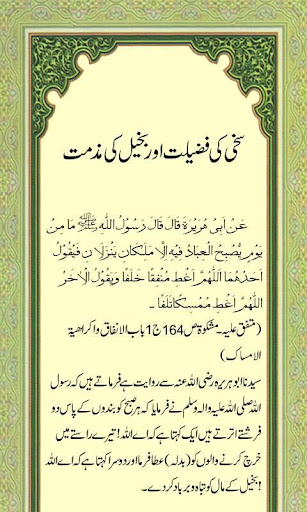 سخی کی فضیلت اور بخیل کی مذمت
عَنْ اَبِیْ هُرَیْرَةَ قَالَ قَالَ رَسُوْلُ اللهِ ﷺ مَا مِنْ
یَوْمٍ یُصْبِحُ الْعِبَادُ فِیْهِ اِلَّا مَلَکَانِ یَنْزِلَا نِ فَیَقُوْلُ
اَحَدُهُمَا اَللّٰهُمَّ اَعْطِ مُنْفِقًا خَلَفًا وَیَقُوْلُ الْاٰخَرُ
اَللّٰهُمَّ اَعْطِ مُمْسِکًا تَلَفًا ۔
(متفق علیہ۔مشکوۃ ص164ج1باب الانفاق واکراھیۃ
الامساک)
سیدنا ابو ہریرہ رضی اللہ عنہ سے روایت ہے فرماتے ہیں کہ رسول
اللہ صلی اللہ علیہ والہ وسلم نے فرمایا کہ ہر صبح کو بندوں کے پاس دو
فرشتے اترتے ہیں ایک کہتا ہے کہ اے اللہ! تیرے راستے میں
خرچ کرنے والوں کو (بدلہ) عطا فرما اور دوسرا کہتا ہے کہ اے اللہ
!بخیل کے مال کو تباہ و برباد کردے۔